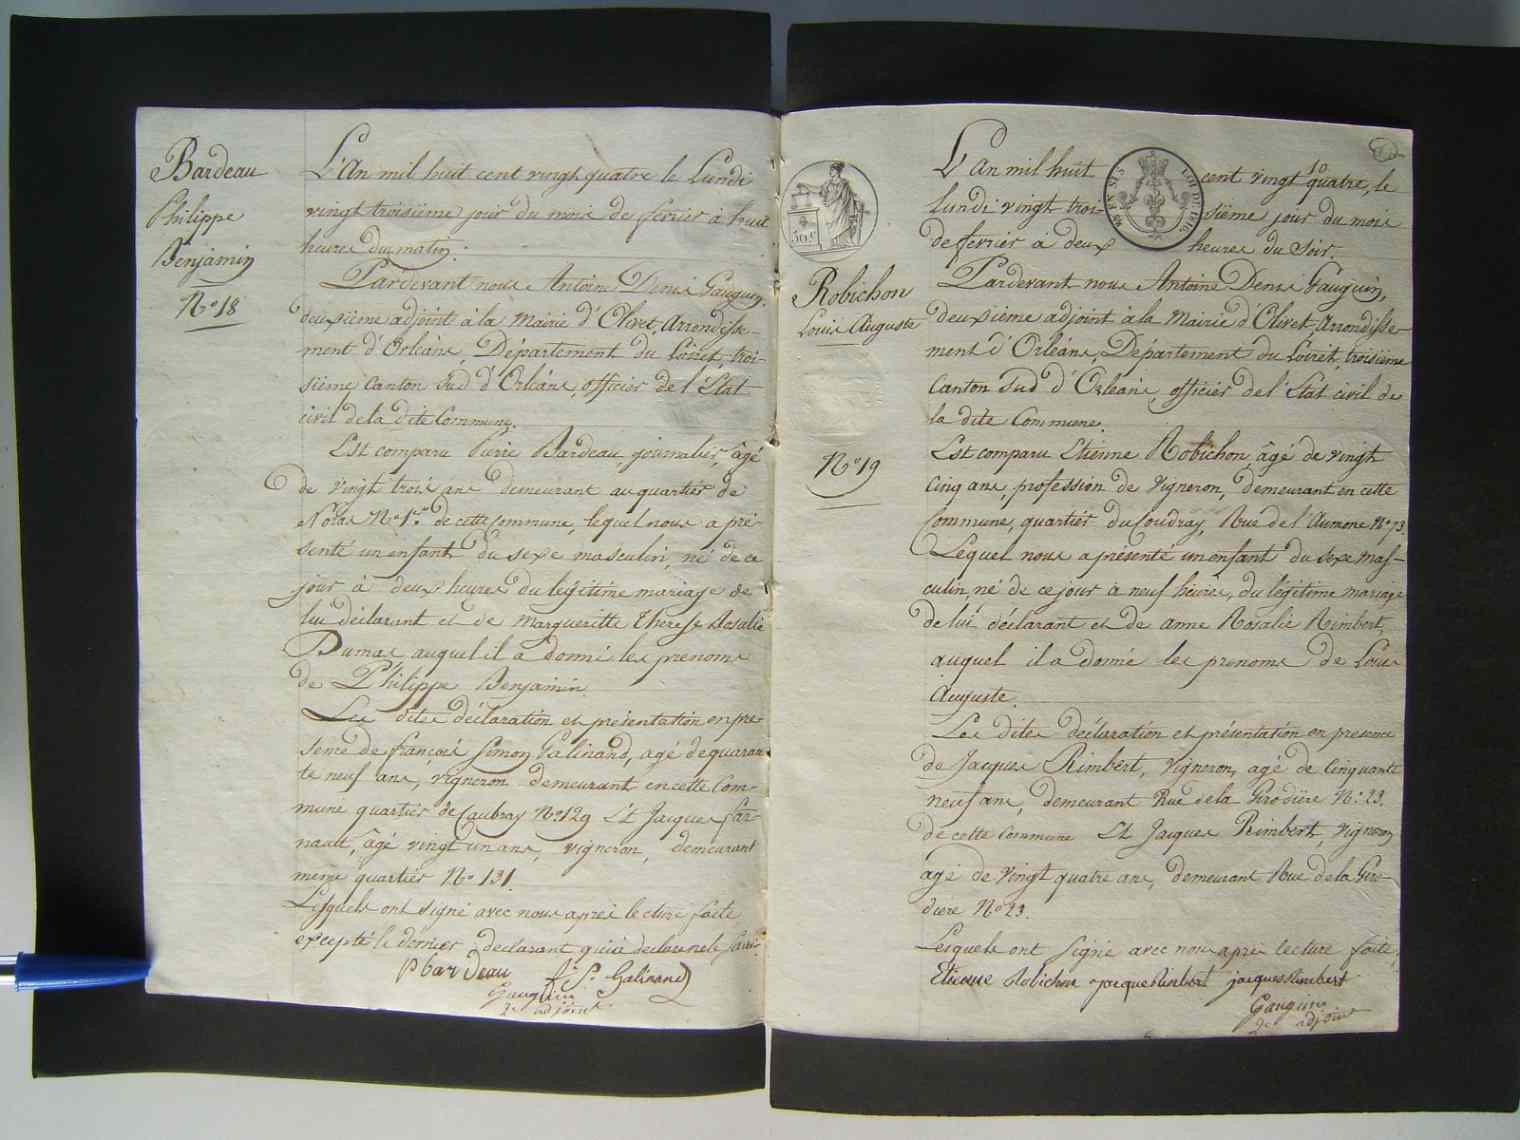 Bardeau
Philippe
Benjamin
N.o 18
L'An mil huit cent vingt quatre le Lundi
vingt troisième jour du mois de fevrier à huit
heures du matin.
Pardevant nous Antoine Denis Gauguin,
deuxième adjoint à la Mairie d'Olivet, Arrondisse-
ment d'Orléans, Département du Loiret, troi-
sième Canton Sud d'Orléans, officier de l'Etat
civil de la dite Commune.
Est comparu Pierre Bardeau, journalier, âgé
de vingt trois ans demeurant au quartier de
N.o 1.er de cette commune, lequel nous a pré-
senté un enfant du sexe masculin, né de ce
jour à deux heures du légitime mariage de
lui déclarant et de Margueritte Therese Rosalie
Dumas auquel il a donné les prenoms
de Philippe Benjamin.
Les dites déclaration et présentation en pre-
sence de françois Simon Galinand, agé de quaran
te neuf ans, vigneron demeurant en cette Com-
mune quartier de Caubray N.o 129 Et Jacques far-
nault, âgé vingt un ans, vigneron, demeurant
meme quartier N.o 131.
Lesquels ont signé avec nous aprés lecture faite
excepté le dernier declarant qui a declaré ne le savoir
P bardeau f.s S. Galinand
Gauguin
2.e adjoint
50 c
Robichon
Louis Auguste
N.o 19
10
LOI DE 1816
L'An mil huit cent vingt quatre, le
lundi vingt troi- sième jour du mois
de fevrier à deux heures du Soir.
Pardevant nous Antoine Denis Gauguin,
deuxième adjoint à la Mairie d'Olivet, Arrondisse-
ment d'Orléans, Département du Loiret, troisième
Canton Sud d'Orléans, officier de l'Etat civil de
la dite Commune.
Est comparu Etienne Robichon, âgé de vingt
cinq ans, profession de vigneron, demeurant en cette
Commune, quartier du Coudray, Rue de l'Aumone N.o 73.
Lequel nous a présenté un enfant du sexe mas-
culin, né de ce jour à neuf heures, du légitime mariage
de lui déclarant et de anne Rosalie Rimbert,
auquel il a donné les prenoms de Louis
Auguste.
Les dites déclaration et présentation en presence
de Jacques Rimbert, vigneron, agé de Cinquante
neuf ans, demeurant Rue de la Girodiere N.o 23.
de cette Commune Et Jacques Rimbert, vigneron
agé de vingt quatre ans, demeurant Rue de la Giro-
diere N.o 23.
Lesquels ont signé avec nous aprés lecture faite,
Etienne Robichon jacques Rimbert jacques Rimbert
Gauguin
2.e adjoint